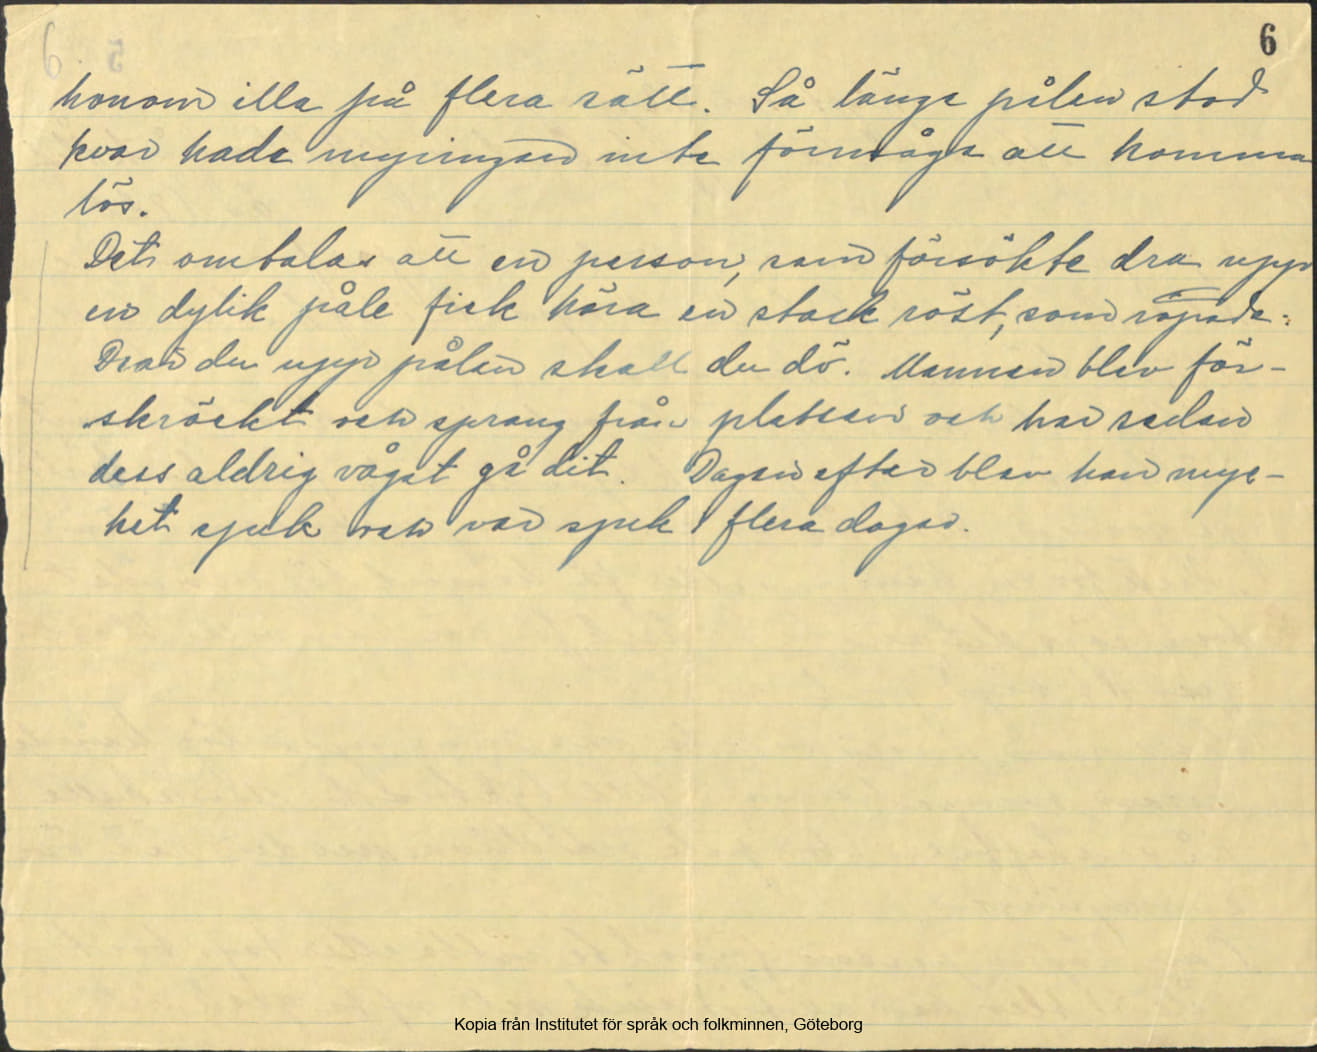 6
honom illa på flera sätt. Så länge pålen stod
kvar hade myringen inte förmåga att komma
lös.
Det omtalas att en person, som försökte dra upp
en dylik påle fick höra en stark röst, som ropade:
Drar du upp pålen skall du dö. Mannen blev för-
skräckt och sprang från platsen och har sedan
dess aldrig vågat gå dit. Dagen efter blev han myc-
ket sjuk och var sjuk i flera dagar.
Kopia från Institutet för språk och folkminnen, Göteborg